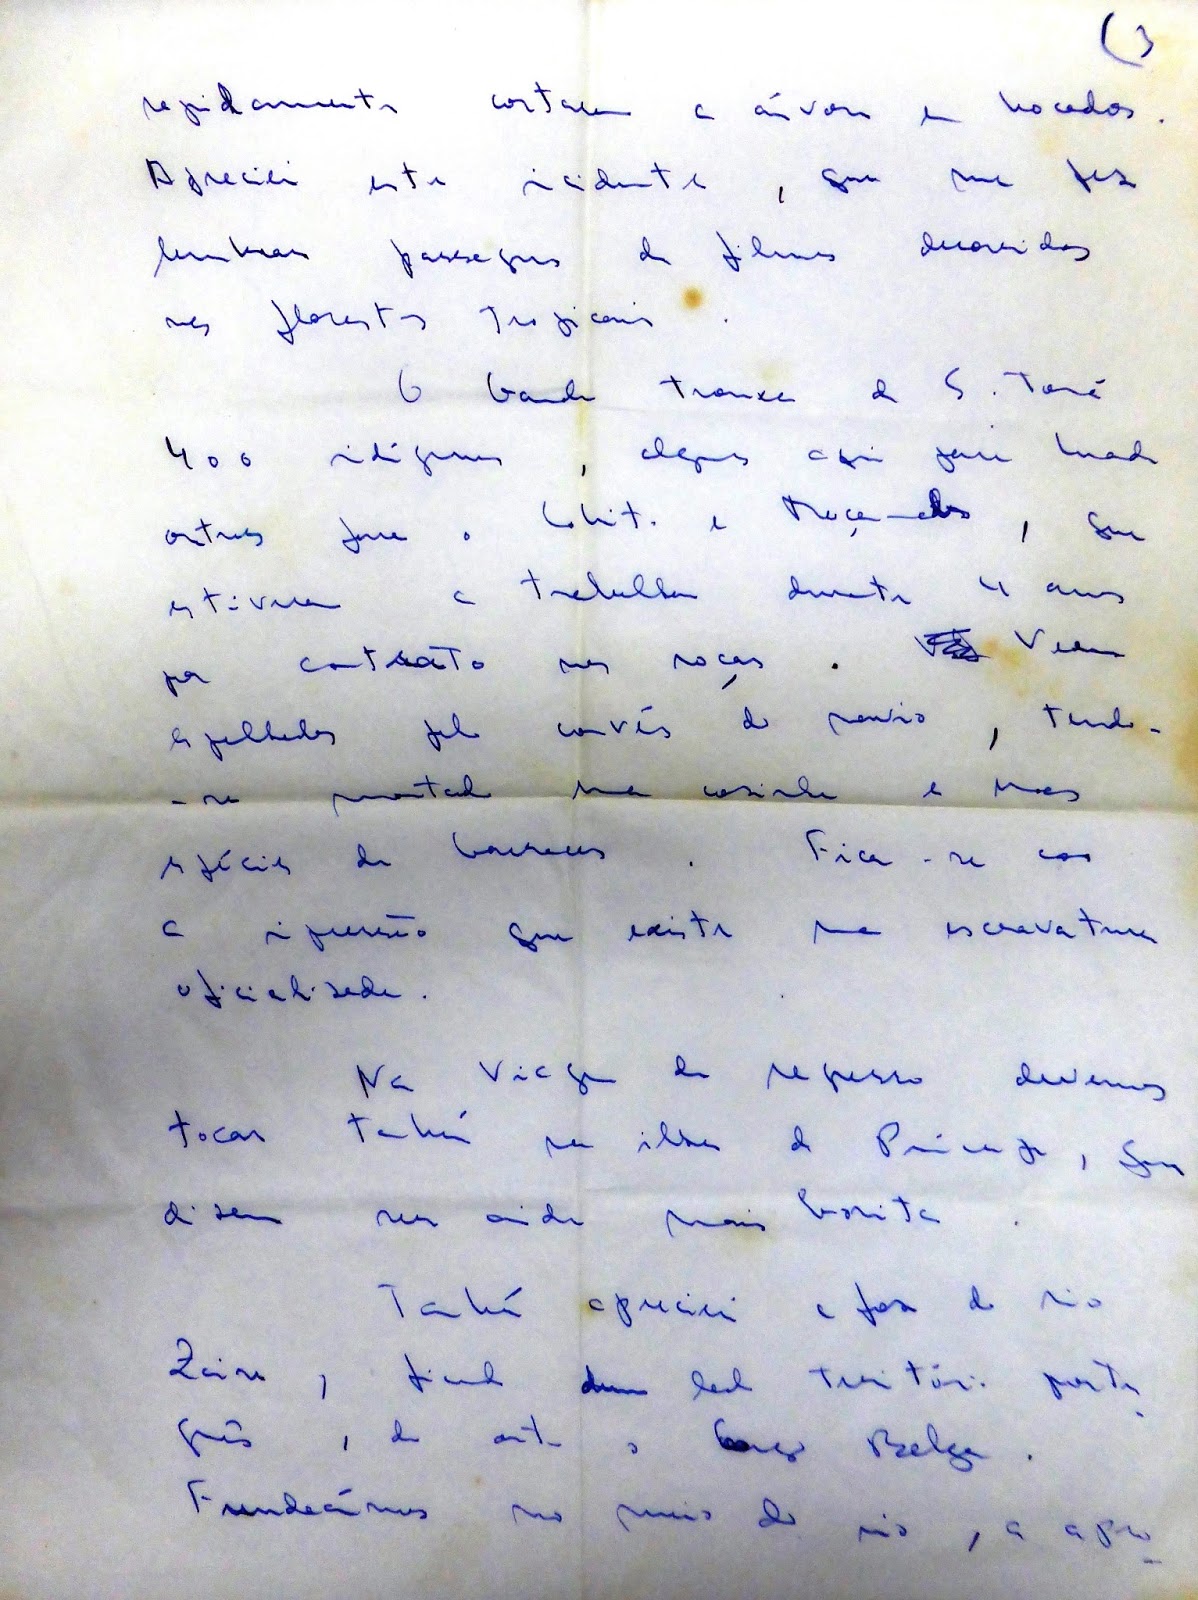 (3
rapidamente cortarem a árvore em bocados.
Apreciei este incidente, que me fez
lembrar passagens de filmes decorridos
nas florestas tropicais.
O barco trouxe de S. Tomé
400 indígenas, alguns aqui para Luanda
outros para o Lobito e Moçamedes, que
estiveram a trabalhar durante 4 anos
por contrato nas roças. Veem
espalhados pelo convés do navio, tendo-
-se montado uma cozinha e umas
espécies de barracas. Fica-se com
a impressão que existe uma escravatura
oficialisada.
Na viagem de regresso devemos
tocar também na ilha do Principe, que
dizem ser ainda mais bonita.
Também apreciei a foz do rio
Zaire, ficando dum lado território portu
guês, do outro o Congo Belga.
Fundeámos no meio do rio, a apro_